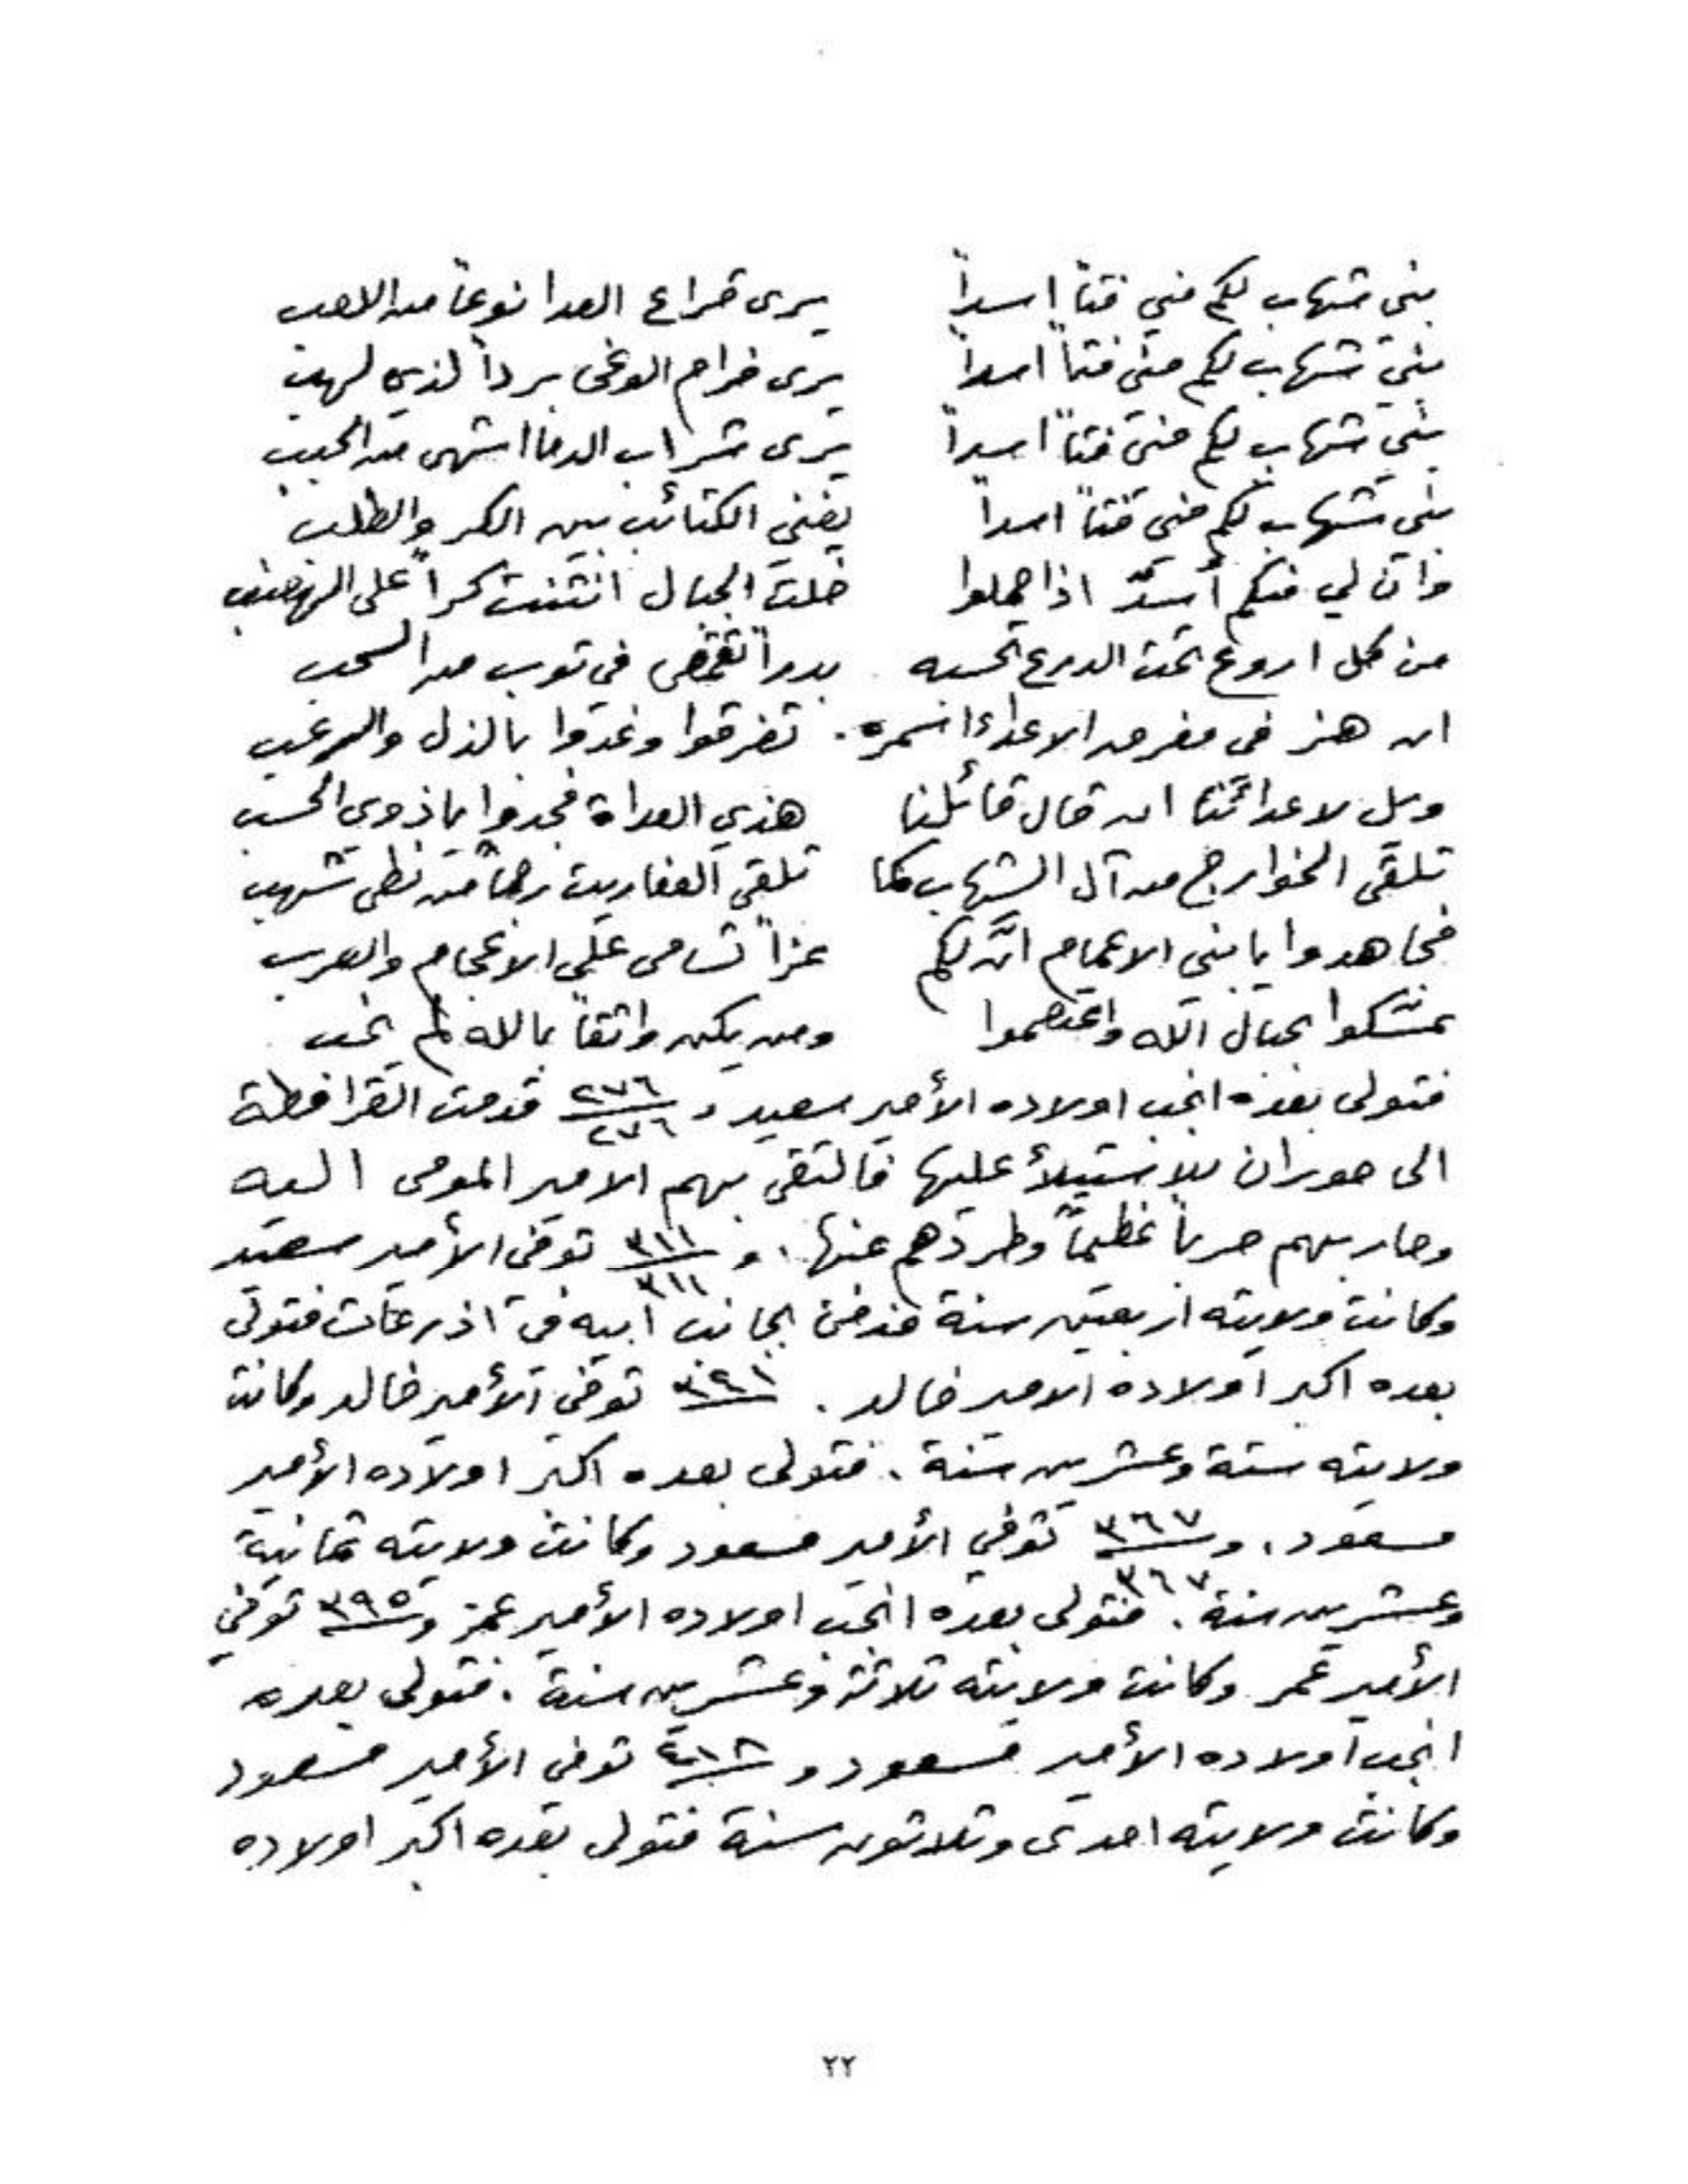 بني شهاب لكم مني فتاً اسداً يرى قراع العدا نوعاً من اللعب
بني شهاب لكم مني فتاً اسداً يرى ضرام الوغى برداً لذي لهب
بني شهاب لكم مني فتاً اسداً يرى شراب الدما اشهى من الحبب
بني شهاب لكم مني فتاً اسداً يفني الكتائب بين الكر والطلب
وان لي منكم أسدٌ اذا حملوا خلت الجبال انثنت كراً على الهضب
من كل اروع تحت الدرع تحسبه بدراً تقمّص في ثوب من السحب
ان هز في مفرق الاعداء اسمره . تفرقوا وغدوا بالذل والرعب
ويل لاعدائنا ان قال قائلنا هذي العداة فجدوا يا ذوي الحسب
تلقى الخوارج من آل الشهاب كما تلقى العفاريت رجماً من لظى شهب
فجاهدوا يا بني الاعمام انّ لكم عزاً تسامى على الاعجام والعرب
تمسّكوا بحبال الله واعتصموا ومن يكن واثقاً بالله لم يخب
فتولى بعده انجب اولاده الأمير سعيد و ٢٧٦ ٢٧٦ قدمت القرامطة
الى حوران للاستيلأ عليها فالتقى بهم الامير المومى اليه
وحاربهم حرباً عظيماً وطردهم عنها . و ٣١١ ٣١١ توفى الأمير سعيد
وكانت ولايته اربعين سنة فدفن بجانب ابيه في اذرعات فتولى
بعده اكبر اولاده الامير خالد . توفي الأمير خالد وكانت
ولايته ستة وعشرين سنة . فتولى بعده اكبر اولاده الأمير
مسعود . و ٣٦٧ ٣٦٧ توفي الأمير مسعود وكانت ولايته ثمانية
وعشرين سنة . فتولى بعده انجب اولاده الأمير عمر و ٣٩٥ توفي
الأمير عمر وكانت ولايته ثلاثة وعشرين سنة . فتولى بعده
انجب اولاده الأمير مسعود و توفي الأمير مسعود
وكانت ولايته احدى وثلاثون سنة فتولى بعده اكبر اولاده
٢٢